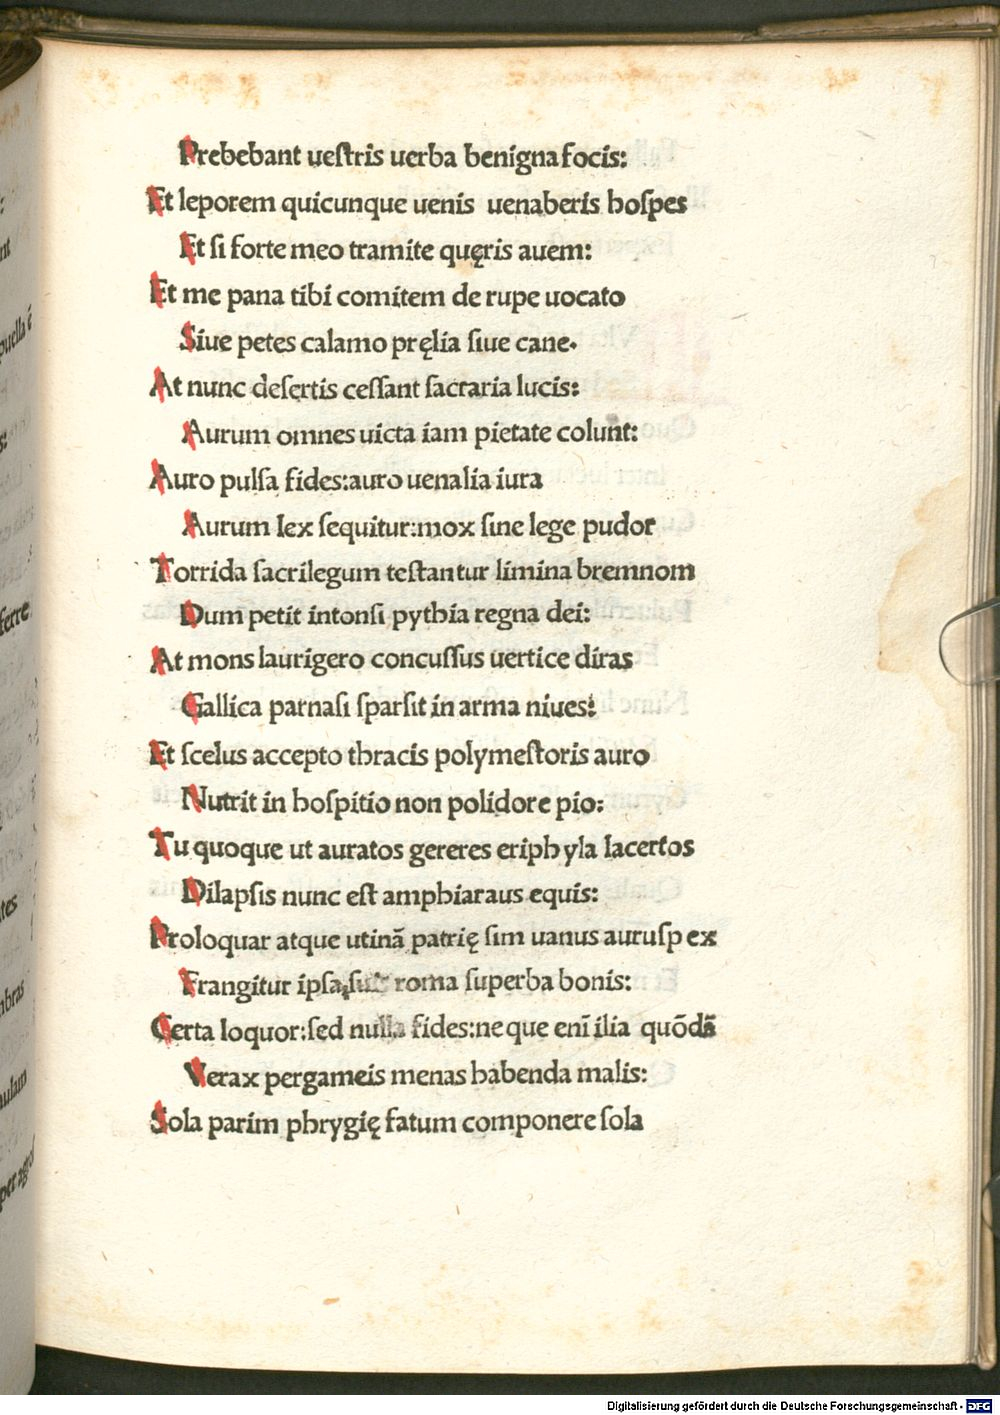 Prebebant uestris uerba benigna focis:
Et leporem quicunque uenis uenaberis hospes
Et si forte meo tramite quęris auem:
Et me pana tibi comitem de rupe uocato
Siue petes calamo pręlia siue cane.
At nunc desertis cessant sacraria lucis:
Aurum omnes uicta iam pietate colunt:
Auro pulsa fides:auro uenalia iura
Aurum lex sequitur:mox sine lege pudor
Torrida sacrilegum testantur limina bremnom
Dum petit intonsi pythia regna dei:
At mons laurigero concussus uertice diras
Gallica parnasi sparsit in arma niues:
Et scelus accepto thracis polymestoris auro
Nutrit in hospitio non polidore pio:
Tu quoque ut auratos gereres eriphyla lacertos
Dilapsis nunc est amphiaraus equis:
Proloquar atque utinā patrię sim uanus auruspex
Frangitur ipsa suis roma superba bonis:
Certa loquor:sed nulla fides:neque enī ilia quōdā
Verax pergameis menas habenda malis:
Sola parim phrygię fatum componere sola
puella ē
ferre
Digitalisierung gefördert durch die Deutsche Forschungsgemeinschaft - DFG